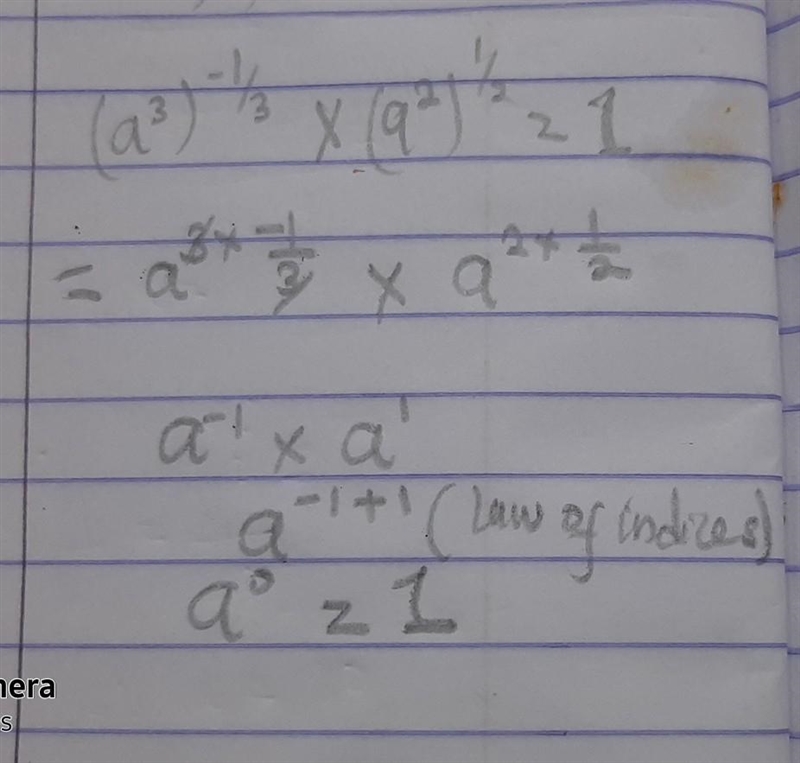 (a³)^-1/3 × (a²)^1/2 = 1
= a^3×-1/3 × a^2×1/2
a^-1 × a^1
a^-1+1 (law of indices)
a^0 = 1